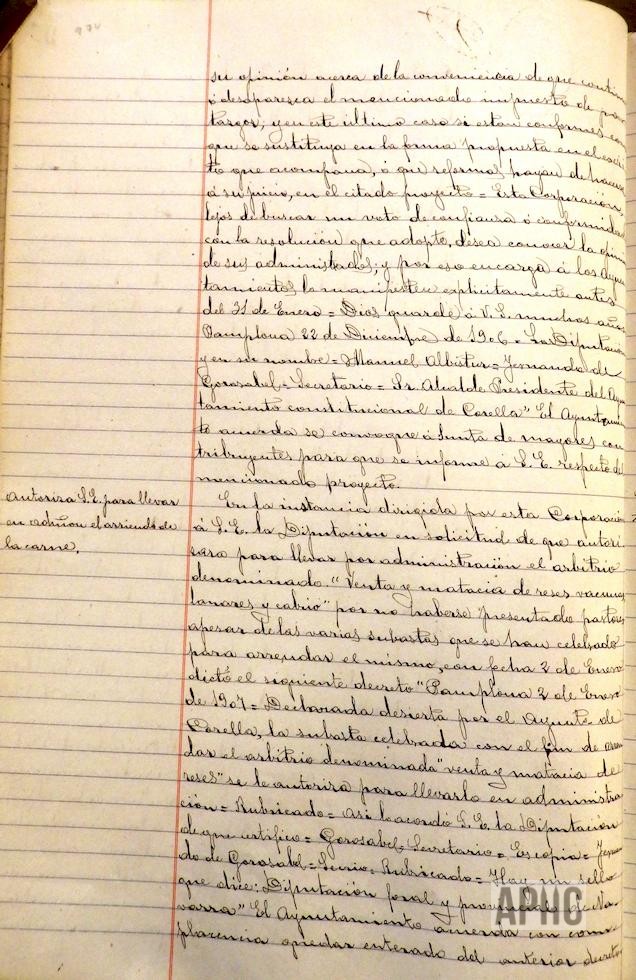 su opinión acerca de la conveniencia de que contin
ó desaparezca el mencionado impuesto de por
tazgos; y en este último caso si estan conformes con
que se sustituya en la forma propuesta en el escri
to que acompaña, ó que reformas hayan de hacerse
á su juicio, en el citado proyecto = Esta Corporación,
lejos de buscar un voto de confianza ó conformidad
con la resolución que adopte, desea conocer la opini
de sus administrados; y por eso encarga á los Ayun
tamientos la manifiesten explicitamente antes
del 31 de Enero = Dios guarde á V. S. muchos años
Pamplona 22 de Diciembre de 1906 = La Diputación
y en su nombre = Manuel Albistur = Fernando de
Gorosabel = Secretario = Sr. Alcalde Presidente del Ayun
tamiento constitucional de Corella" El Ayuntamien
to acuerda se convoque á Junta de mayores con
tribuyentes para que se informe á S. E. respecto del
mencionado proyecto.
Autoriza S. E. para llevar
en admon el arriendo de
la carne.
En la instancia dirigida por esta Corporación
á S. E. la Diputación en solicitud de que autori
sara para llevar por administración el arbitrio
denominado "Venta y matacia de reses vacunas
lanares y cabrio" por no haberse presentado postores
apesar de las varias subastas que se han celebrado
para arrendar el mismo, con fecha 2 de Enero
dictó el siguiente decreto "Pamplona 2 de Enero
de 1907 = Declarada desierta por el Ayunto de
Corella, la subasta celebrada con el fin de arren
dar el arbitrio denominada "venta y matacia de
reses" se le autoriza para llevarlo en administra
ción = Rubricado = Asi lo acordó S. E. la Diputación
de que certifico = Gorosabel = Secretario = Es copia = Fernan
do de Gorosabel = Secrio = Rubricado = Hay un sello
que dice: Diputación foral y provincial de Na
varra" El Ayuntamiento acuerda con com
placencia quedar enterado del anterior decreto
APHC